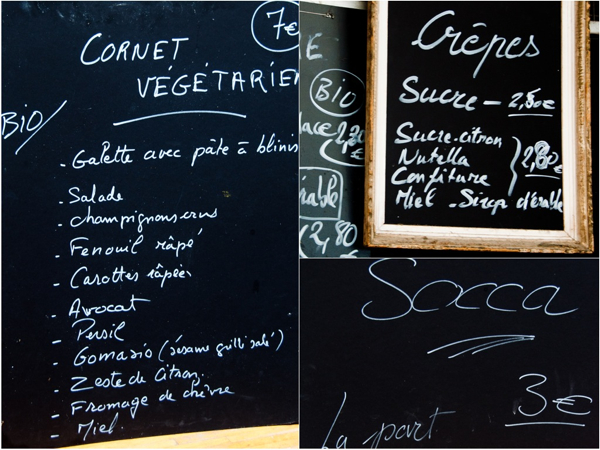 7€
CORNET
VÉGÉTARIEN
BIO
- Galette avec pâte à blinis
- Salade
- champignons crus
- Fenouil râpé
- Carottes râpées
- Avocat
- Persil
- Gomasio (sésame grillé salé)
- Zeste de Citron.
- Fromage de chèvre
- Miel.
E
BIO
2,80
Crêpes
Sucre - 2,50€
Sucre-citron
Nutella
Confiture
2,80€
Miel - Sirop d'érable
Socca
3€
La part